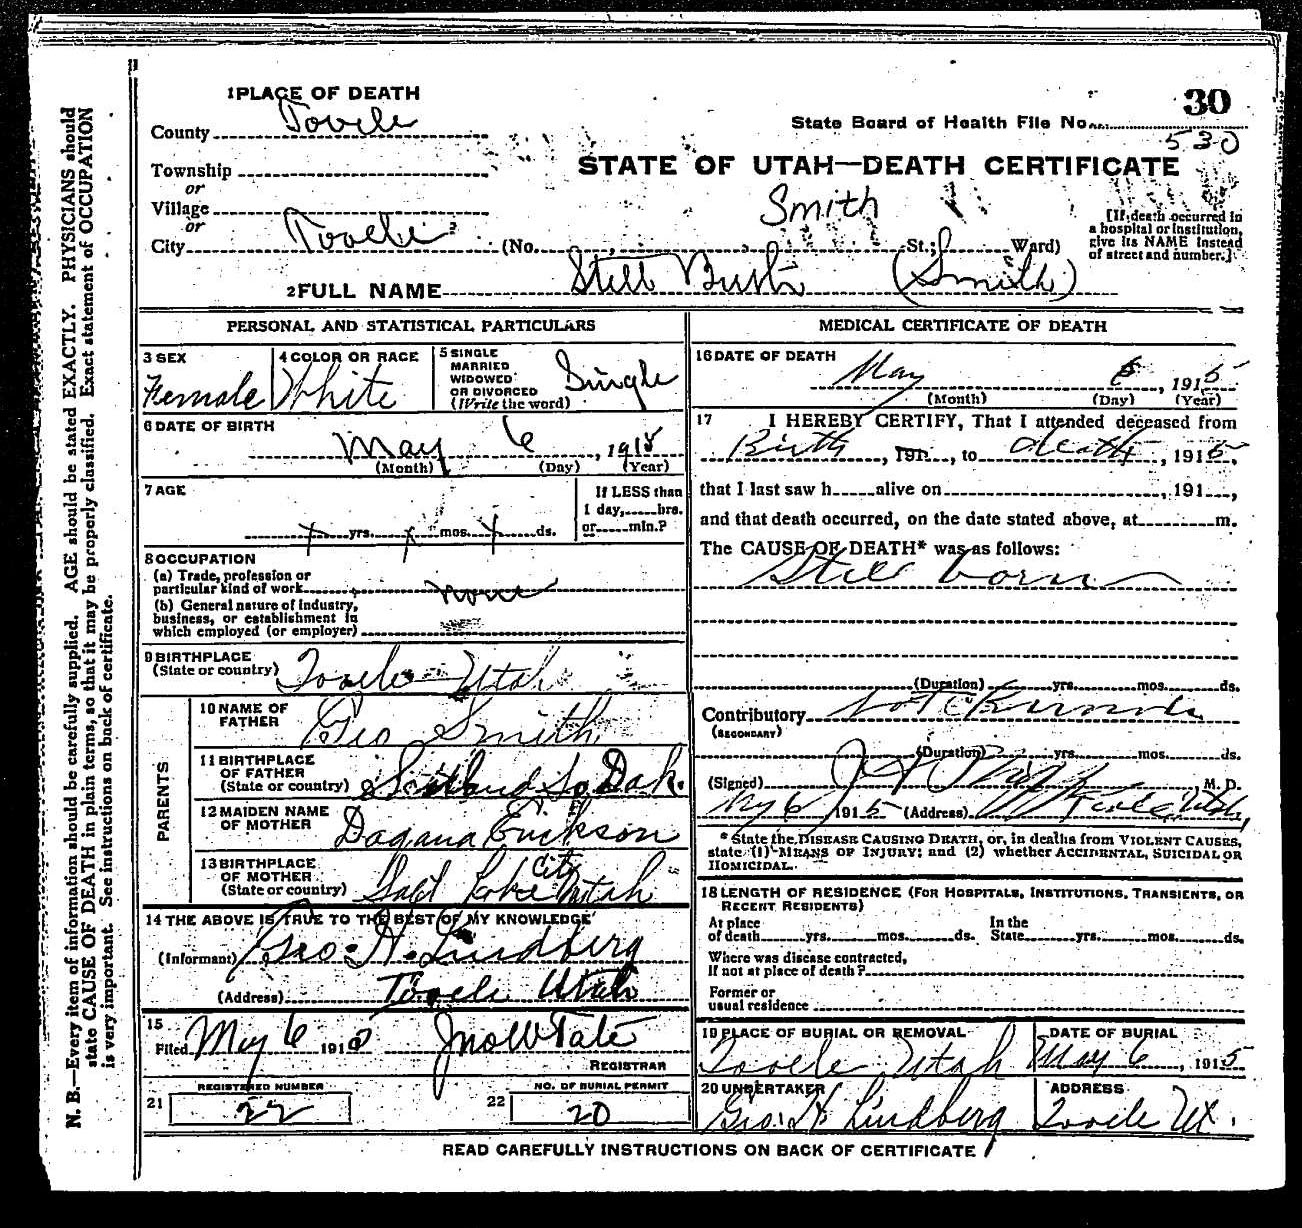 30
1 PLACE OF DEATH
County Tooele
State Board of Health File No. 530
STATE OF UTAH—DEATH CERTIFICATE
Township
or
Village
or
City Tooele (No. , St.; Ward)
Smith
[If death occurred in a hospital or institution, give its NAME instead of street and number.]
2 FULL NAME Still Birth (Smith)
N. B.—Every item of information should be carefully supplied. AGE should be stated EXACTLY. PHYSICIANS should
state CAUSE OF DEATH in plain terms, so that it may be properly classified. Exact statement of OCCUPATION
is very important. See instructions on back of certificate.
PERSONAL AND STATISTICAL PARTICULARS
3 SEX
Female
4 COLOR OR RACE
White
5 SINGLE
MARRIED
WIDOWED
OR DIVORCED
(Write the word)
Single
6 DATE OF BIRTH
May 6, 1915
(Month) (Day) (Year)
7 AGE
If LESS than
1 day, hrs.
x yrs. x mos. x ds. or min.?
8 OCCUPATION
(a) Trade, profession or
particular kind of work none
(b) General nature of industry,
business, or establishment in
which employed (or employer)
9 BIRTHPLACE
(State or country) Tooele Utah
PARENTS
10 NAME OF
FATHER Geo Smith
11 BIRTHPLACE
OF FATHER
(State or country) Scotland So Dak.
12 MAIDEN NAME
OF MOTHER Dagana Erickson
13 BIRTHPLACE
OF MOTHER
(State or country) Salt Lake City Utah
14 THE ABOVE IS TRUE TO THE BEST OF MY KNOWLEDGE
(Informant) Geo. H. Lindberg
(Address) Tooele Utah
15
Filed May 6 191 Jno W Tate
REGISTRAR
REGISTERED NUMBER
21 22
NO. OF BURIAL PERMIT
22 20
MEDICAL CERTIFICATE OF DEATH
16 DATE OF DEATH
May 6, 1915
(Month) (Day) (Year)
17 I HEREBY CERTIFY, That I attended deceased from
Birth, 191, to death, 1915,
that I last saw h alive on , 191 ,
and that death occurred, on the date stated above, at m.
The CAUSE OF DEATH* was as follows:
Still born
(Duration) yrs. mos. ds.
Contributory
(SECONDARY)
(Duration) yrs. mos. ds.
(Signed) M. D.
My 6 1915 (Address) Tooele Utah,
* State the DISEASE CAUSING DEATH, or, in deaths from VIOLENT CAUSES,
state (1) MEANS OF INJURY; and (2) whether ACCIDENTAL, SUICIDAL OR
HOMICIDAL.
18 LENGTH OF RESIDENCE (FOR HOSPITALS, INSTITUTIONS, TRANSIENTS, OR
RECENT RESIDENTS)
At place
of death yrs. mos. ds.
In the
State yrs. mos. ds.
Where was disease contracted,
If not at place of death?
Former or
usual residence
19 PLACE OF BURIAL OR REMOVAL
Tooele Utah
DATE OF BURIAL
May 6, 1915
20 UNDERTAKER
Geo. H Lindberg
ADDRESS
Tooele Ut.
READ CAREFULLY INSTRUCTIONS ON BACK OF CERTIFICATE